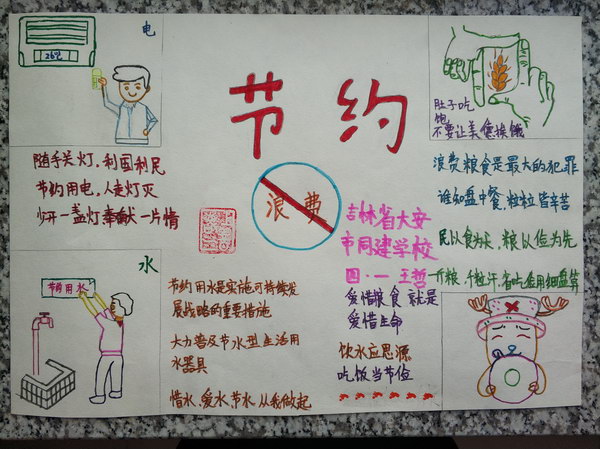 电
26℃
节约
肚子吃
饱
不要让美德挨饿
随手关灯,利国利民
节约用电,人走灯灭
少开一盏灯奉献一片情
浪费
浪费粮食是最大的犯罪
谁知盘中餐,粒粒皆辛苦
民以食为天,粮以俭为先
一斤粮,千粒汗,省吃俭用细盘算
吉林省大安
市同建学校
四·一 王哲
爱惜粮食就是
爱惜生命
饮水应思源
吃饭当节俭
水
节约用水
节约用水是实施可持续发
展战略的重要措施
大力普及节水型生活用
水器具
惜水、爱水、节水,从我做起